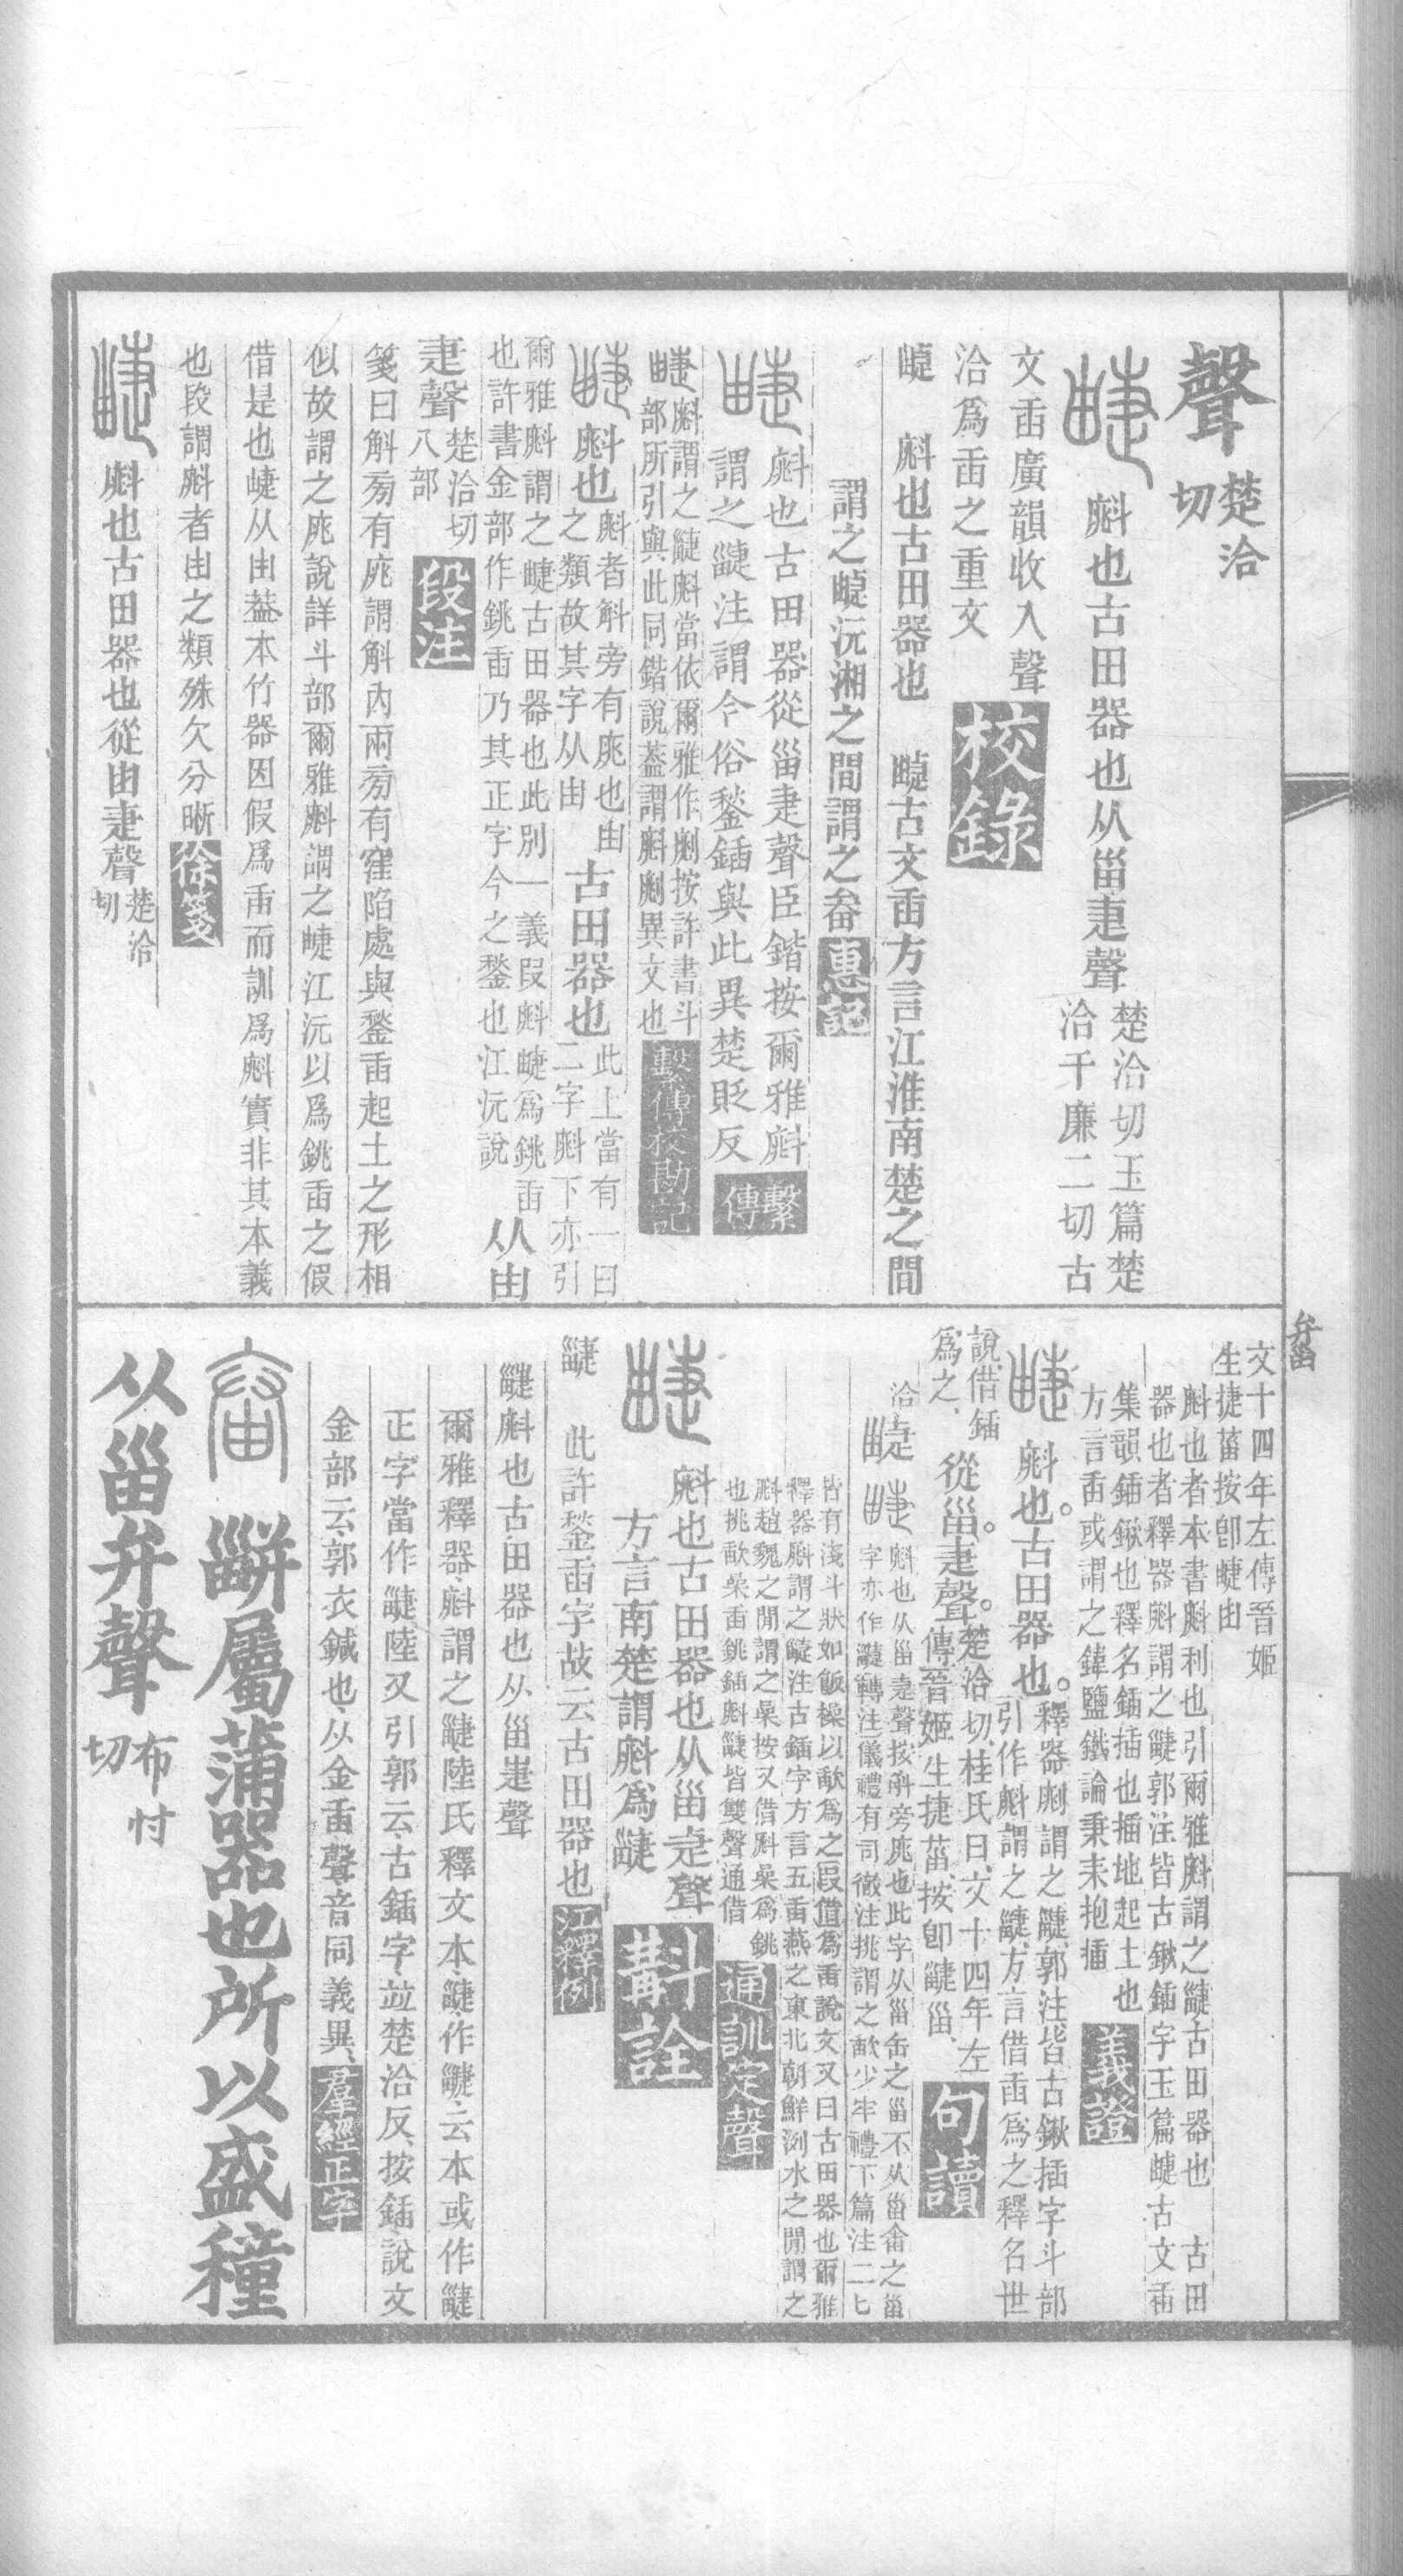 聲楚洽切
𤲰也古田器也从甾疌聲楚洽切玉篇楚
洽千廉二切古
文臿廣韻收入聲
洽爲臿之重文校錄
𤲰也古田器也 古文臿方言江淮南楚之間
謂之 沅湘之間謂之畚惠記
也古田器從甾疌聲臣鍇按爾雅
謂之 注謂今俗鍫鍤與此異楚貶反繫傳
謂之 當依爾雅作 按許書斗
部所引與此同鍇說葢謂 異文也繫傳校勘記
也 者斛旁有庣也甾
之類故其字从甾古田器也此上當有一曰
二字 下亦引
爾雅 謂之 古田器也此別一義叚 爲銚臿
也許書金部作銚臿乃其正字今之鍫也江沅說从甾
疌聲楚洽切
八部段注
箋曰斛㫄有庣謂斛內兩㫄有窪陷處與鍫臿起土之形相
似故謂之庣說詳斗部爾雅 謂之 江沅以爲銚臿之假
借是也 从甾葢本竹器因假爲臿而訓爲 實非其本義
也段謂 者甾之類殊欠分晰徐箋
也古田器也從甾疌聲楚洽切
文十四年左傳晉姬
生捷菑按卽 甾
也者本書 利也引爾雅 謂之 古田器也 古田
器也者釋器 謂之 郭注皆古鍬鍤字玉篇 古文臿
集韻鍤鍬也釋名鍤插也插地起土也
方言臿或謂之鍏鹽鐵論秉耒抱插義證
也古田器也釋器 謂之 郭注皆古鍬插字斗部
引作 謂之 方言借臿爲之釋名世
說借鍤
爲之從甾疌聲楚洽切桂氏曰文十四年左
傳晉姬生捷菑按卽 甾句讀
洽疌 也从甾疌聲按斛旁庣也此字从甾缶之甾不从甾畬之甾
字亦作 轉注儀禮有司徹注挑謂之歃少牢禮下篇注二匕
皆有淺斗狀如飯橾以歃爲之叚借爲臿說文又曰古田器也爾雅
釋器 謂之 注古鍤字方言五臿燕之東北朝鮮洌水之閒謂之
趙魏之閒謂之喿按又借 喿爲銚
也挑歃喿臿銚鍤 皆雙聲通借通訓定聲
也古田器也从甾疌聲
方言南楚謂 爲 斠詮
此許鍫臿字故云古田器也江釋例
也古田器也从甾疌聲
爾雅釋器 謂之 陸氏釋文本 作 云本或作
正字當作 陸又引郭云古鍤字並楚洽反按鍤說文
金部云郭衣鍼也从金臿聲音同義異羣經正字
屬蒲器也所以盛穜
从甾弁聲布忖切
弁甾